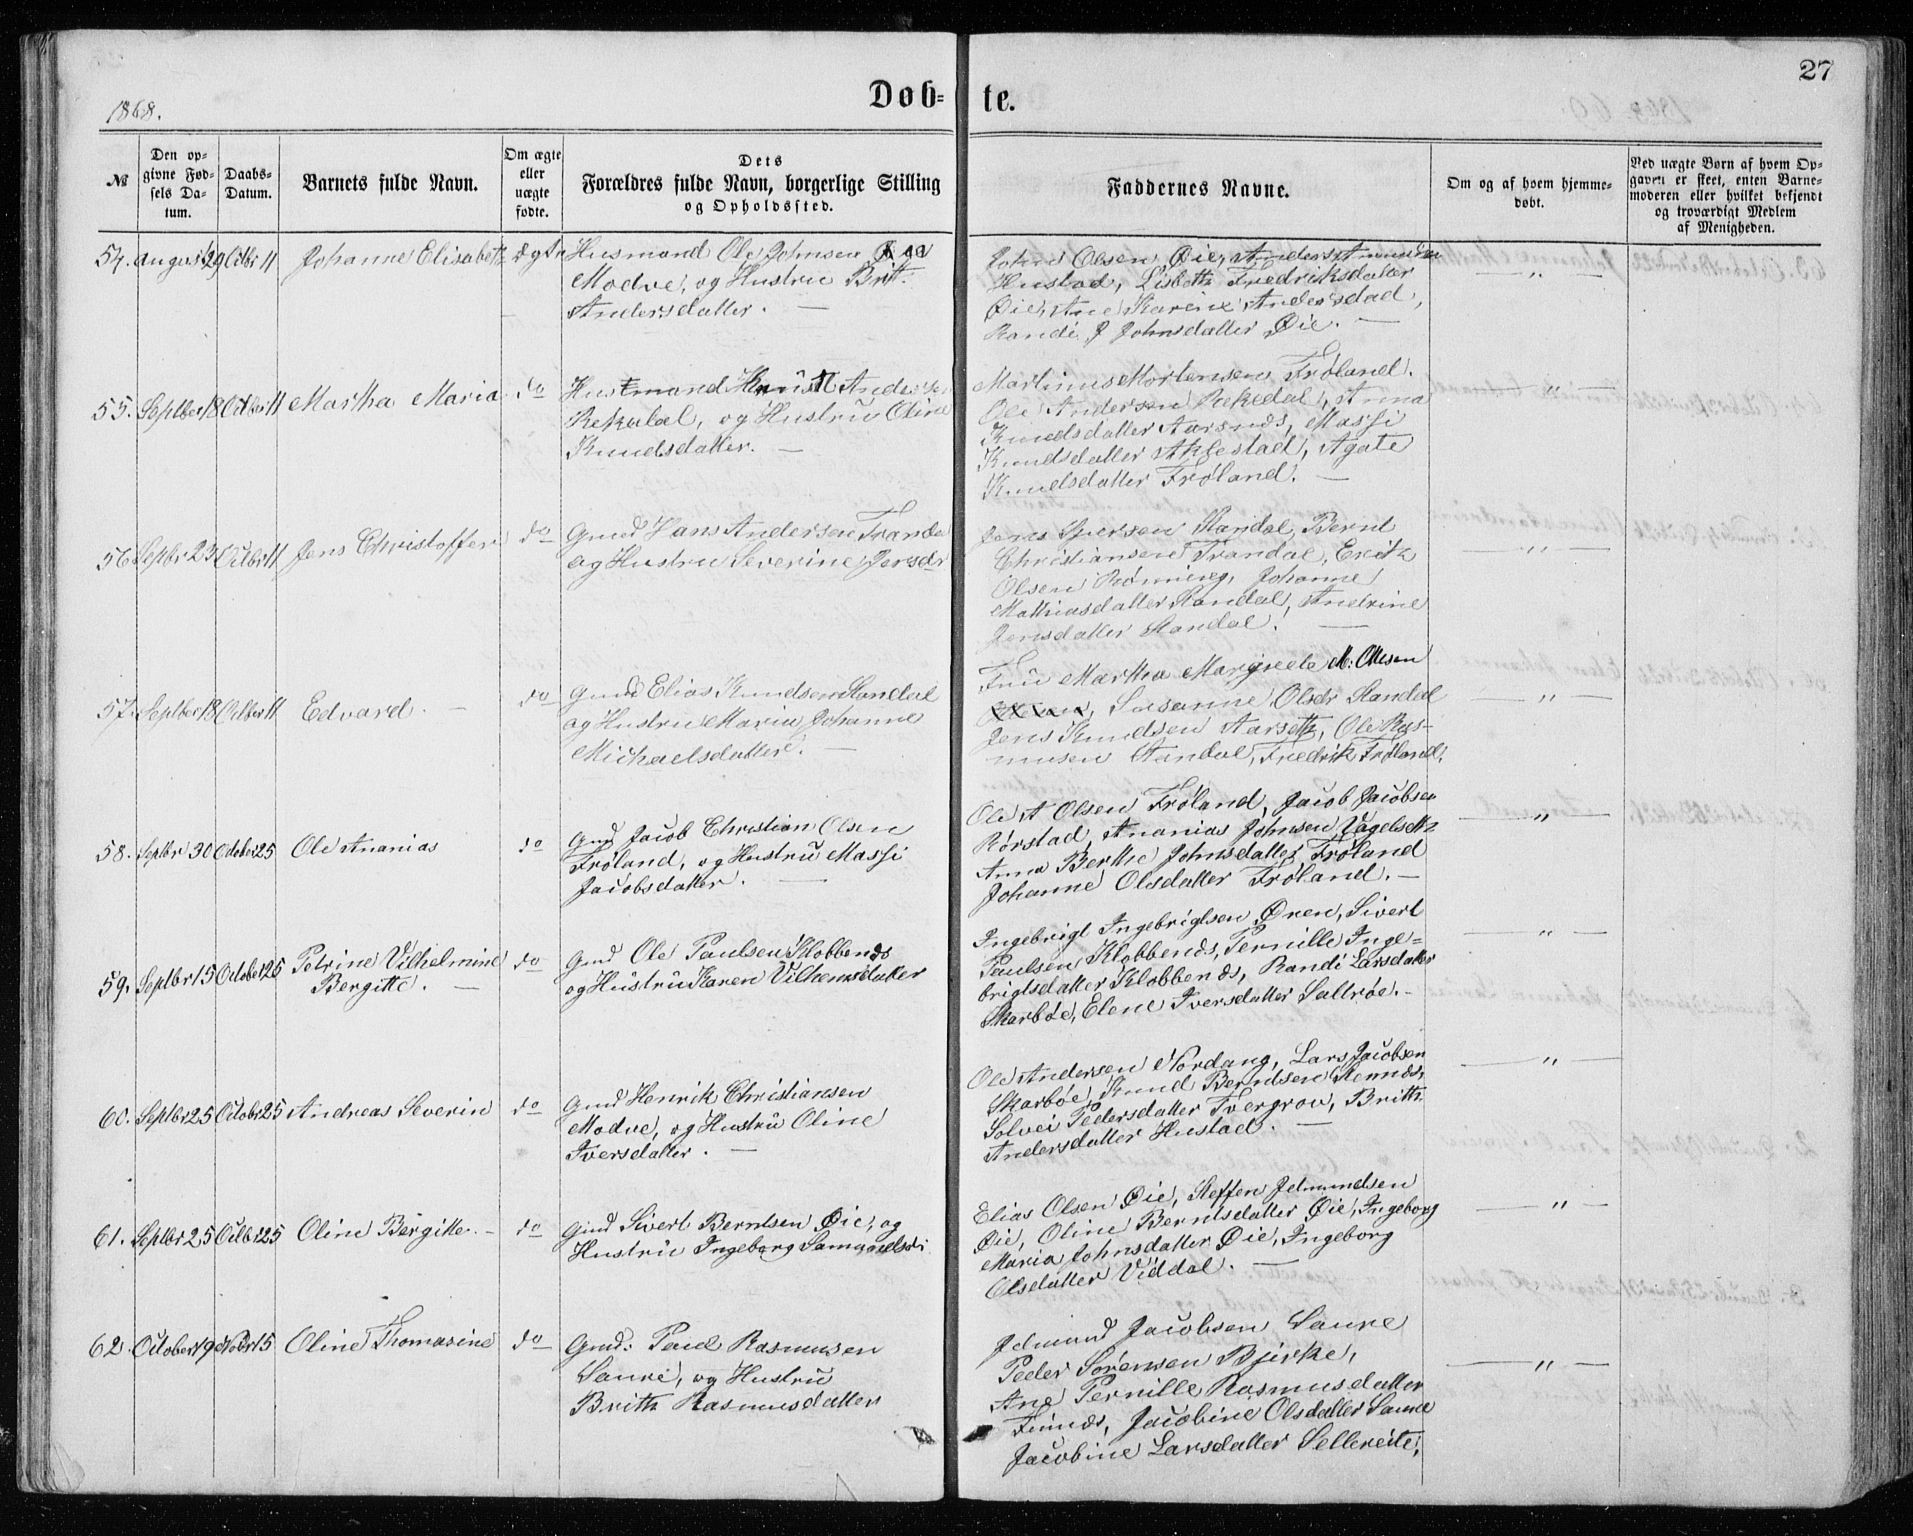 27
1868.
Døb-
te.
№
Den op-
givne Fød-
sels Da-
tum.
Daabs-
Datum.
Barnets fulde Navn.
Om ægte
eller
uægte
fødte.
Dets
Forældres fulde Navn, borgerlige Stilling
og Opholdssted.
Faddernes Navne.
Om og af hvem hjemme-
døbt.
Ved uægte Børn af hvem Op-
gaven er skeet, enten Barne-
moderen eller hvilket bekjendt
og troværdigt Medlem
af Menigheden.
54. August 29 Octbr 11 Johanne Elisabeth ægte Husmand Ole Johnsen
Modve, og Hustru Britt.
Andersdatter. —
John Olsen Øie, Anders Amundsen
Hustad, Lisbeth Fredriksdatter
Øie, Ane Karine Andersdad,
Randi J Johnsdatter Øie. —
— „ —
55. Septbr 18 Octbr 11 Martha Maria do Husmand Knut Andersen
Rekedal, og Hustru Oline
Knudsdatter. —
Martinus Mortensen Frøland.
Ole Andersen Rekedal, Anna
Knudsdatter Aarsnes, Massi
Knudsdatter Aklestad, Agate
Knudsdatter Frøland. —
— „ —
56. Septbr 23 Octbr 11 Jens Christoffer do Gmd Hans Andersen Trandal
og Hustru Severine Jensdr
Jens Iversen Standal, Bernt
Christiansen Trandal, Erik
Olsen Rønning, Johanne
Mathiasdatter Standal, Andrine
Jensdatter Standal. —
— „ —
57. Septbr 18 Octbr 11 Edvard. — do Gmd Elias Knudsen Standal
og Hustru Maria Johanne
Michaelsdatter. —
Fru Martha Margrete M: Olsen
Susanne Olsdr Standal
Jens Knudsen Aarseth, Ole Ras-
musen Standal, Fredrik Frøland.
— „ —
58. Septbr 30 October 25 Ole Ananias do Gmd Jacob Christian Olsen
Frøland, og Hustru Massi
Jacobsdatter. —
Ole A Olsen Frøland, Jacob Jacobsen
Rørstad, Ananias Johnsen Vagelseth
Anna Berthe Johnsdatter Frøland
Johanne Olsdatter Frøland. —
— „ —
59. Septbr 15 October 25 Petrine Vilhelmine do Gmd Ole Paulsen Klobbenes
Bergitte. — og Hustru Karen Vilhemsdatter
Ingebrigt Ingebrigtsen Øren, Sivert
Paulsen Klobbenes, Pernille Inge-
brigtsdatter Klobbenes, Randi Larsdatter
Skarbøe, Elene Iversdatter Saltrøe. -
— „ —
60. Septbr 25 Octobr 25 Andreas Severin do Gmd Henrik Christiansen
Modve, og Hustru Oline
Iversdatter. —
Ole Andersen Nordang, Lars Jacobsen
Skarbøe, Knud Berntsen Stennes,
Solvei Pedersdatter Tvergrov, Brith
Andersdatter Hustad. —
— „ —
61. Septbr 25 Octbr 25 Oline Bergitte. - do Gmd Sivert Berntsen Øie, og
Hustru Ingeborg Samuelsdr:
Elias Olsen Øie, Steffen Jetmundsen
Øie, Oline Berntsdatter Øie, Ingeborg
Maria Johnsdatter Øie, Ingeborg
Olsdatter Viddal. —
— „ —
62. October 19 Novbr 15 Oline Thomasine do Gmd: Paul Rasmusen
Saure, og Hustru
Brith Rasmusdatter
Jetmund Jacobsen Saure
Peder Sørensen Bjerke,
Ane Pernille Rasmusdatter
Finnes, Jacobine Olsdatter Saure
Jacobine Larsdatter Sellereite,
— „ —